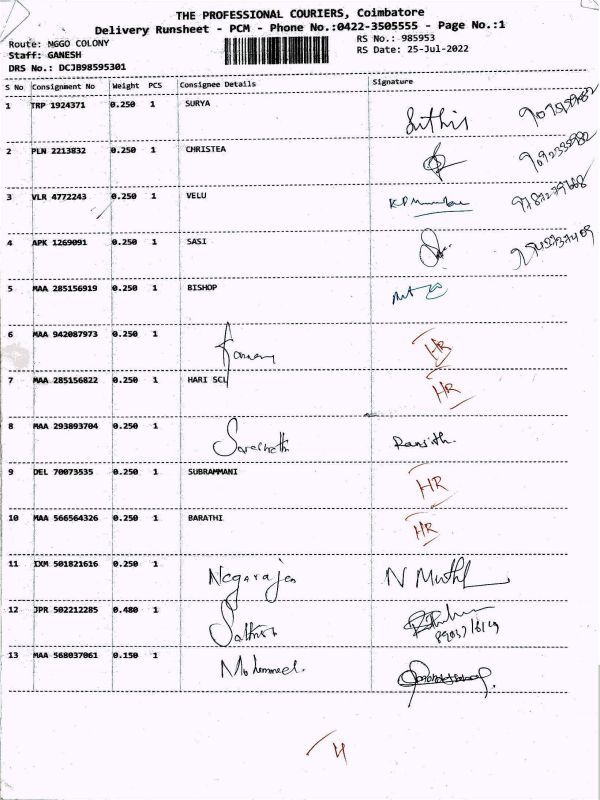 THE PROFESSIONAL COURIERS, Coimbatore
Delivery Runsheet - PCM - Phone No.:0422-3505555 - Page No.:1
Route: NGGO COLONY RS No.: 985953
Staff: GANESH RS Date: 25-Jul-2022
DRS No.: DCJB98595301
S No Consignment No Weight PCS Consignee Details Signature
1 TRP 1924371 0.250 1 SURYA
2 PLN 2213832 0.250 1 CHRISTEA
3 VLR 4772243 0.250 1 VELU
4 APK 1269091 0.250 1 SASI
5 MAA 285156919 0.250 1 BISHOP
6 MAA 942087973 0.250 1 HR
7 MAA 285156822 0.250 1 HARI SCL HR
8 MAA 293893704 0.250 1 Ranjith.
9 DEL 70073535 0.250 1 SUBRAMMANI HR
10 MAA 566564326 0.250 1 BARATHI HR
11 IXM 501821616 0.250 1 Nagarajan
12 JPR 502212285 0.480 1
13 MAA 568037061 0.150 1 Mohammed.
4